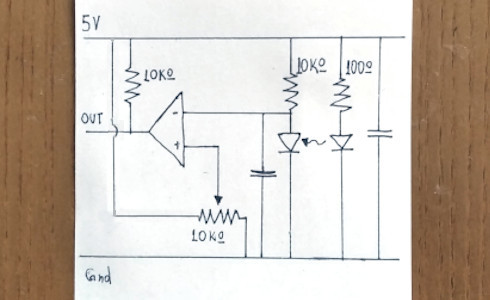 5V
10KΩ
10KΩ
100Ω
OUT
-
+
10KΩ
Gnd